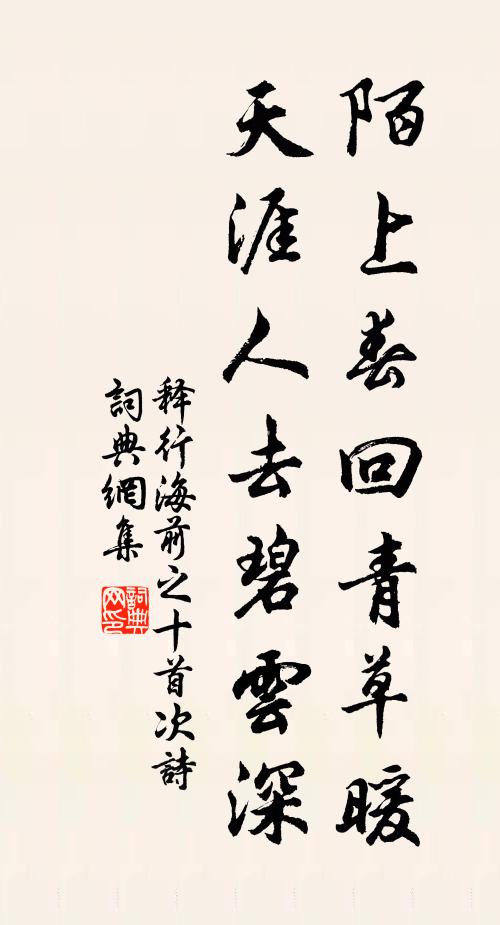 陌上春回青草暖
天涯人去碧雲深
释行海前之十首次詩
詞典網集
詞典网印